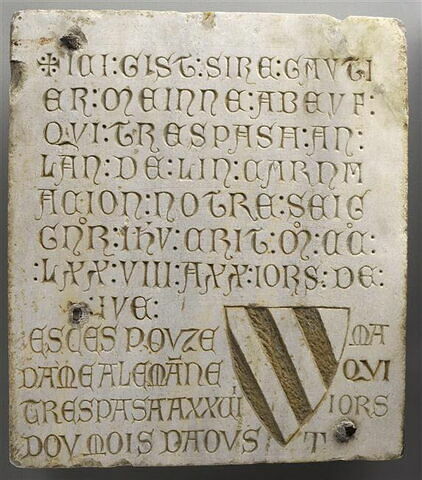 ✠ICI:GIST:SIRE:GAVTI
ER:MEINNE:ABEVF:
QVI:TRESPASA:AN:
LAN:DE:LIN:CARNM
ACION:NOTRE:SEIG
GNR:IHV:CRIT:M:CC:
:LXX:VIII:AXX:IORS:DE:
:IVE:
ESCES POVZE MA
DAME ALEMANE QVI
TRESPASA AXXVII IORS
DOV MOIS DAOVST